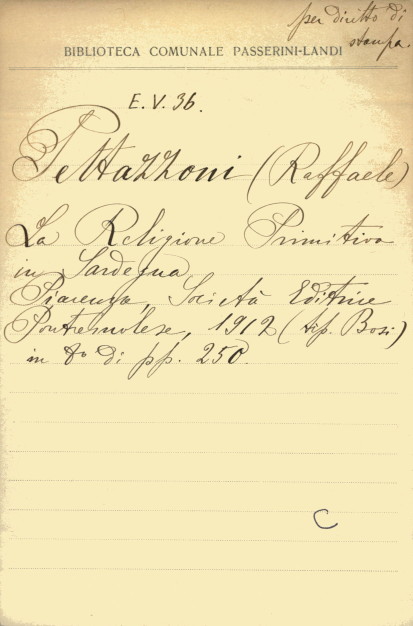 per diritto di
stampa
BIBLIOTECA COMUNALE PASSERINI-LANDI
E. V. 36.
Pettazzoni (Raffaele)
La Religione Primitiva
in Sardegna
Piacenza, Società Editrice
Pontremolese, 1912 (tip. Bosi)
in 8º di pp. 250.
C